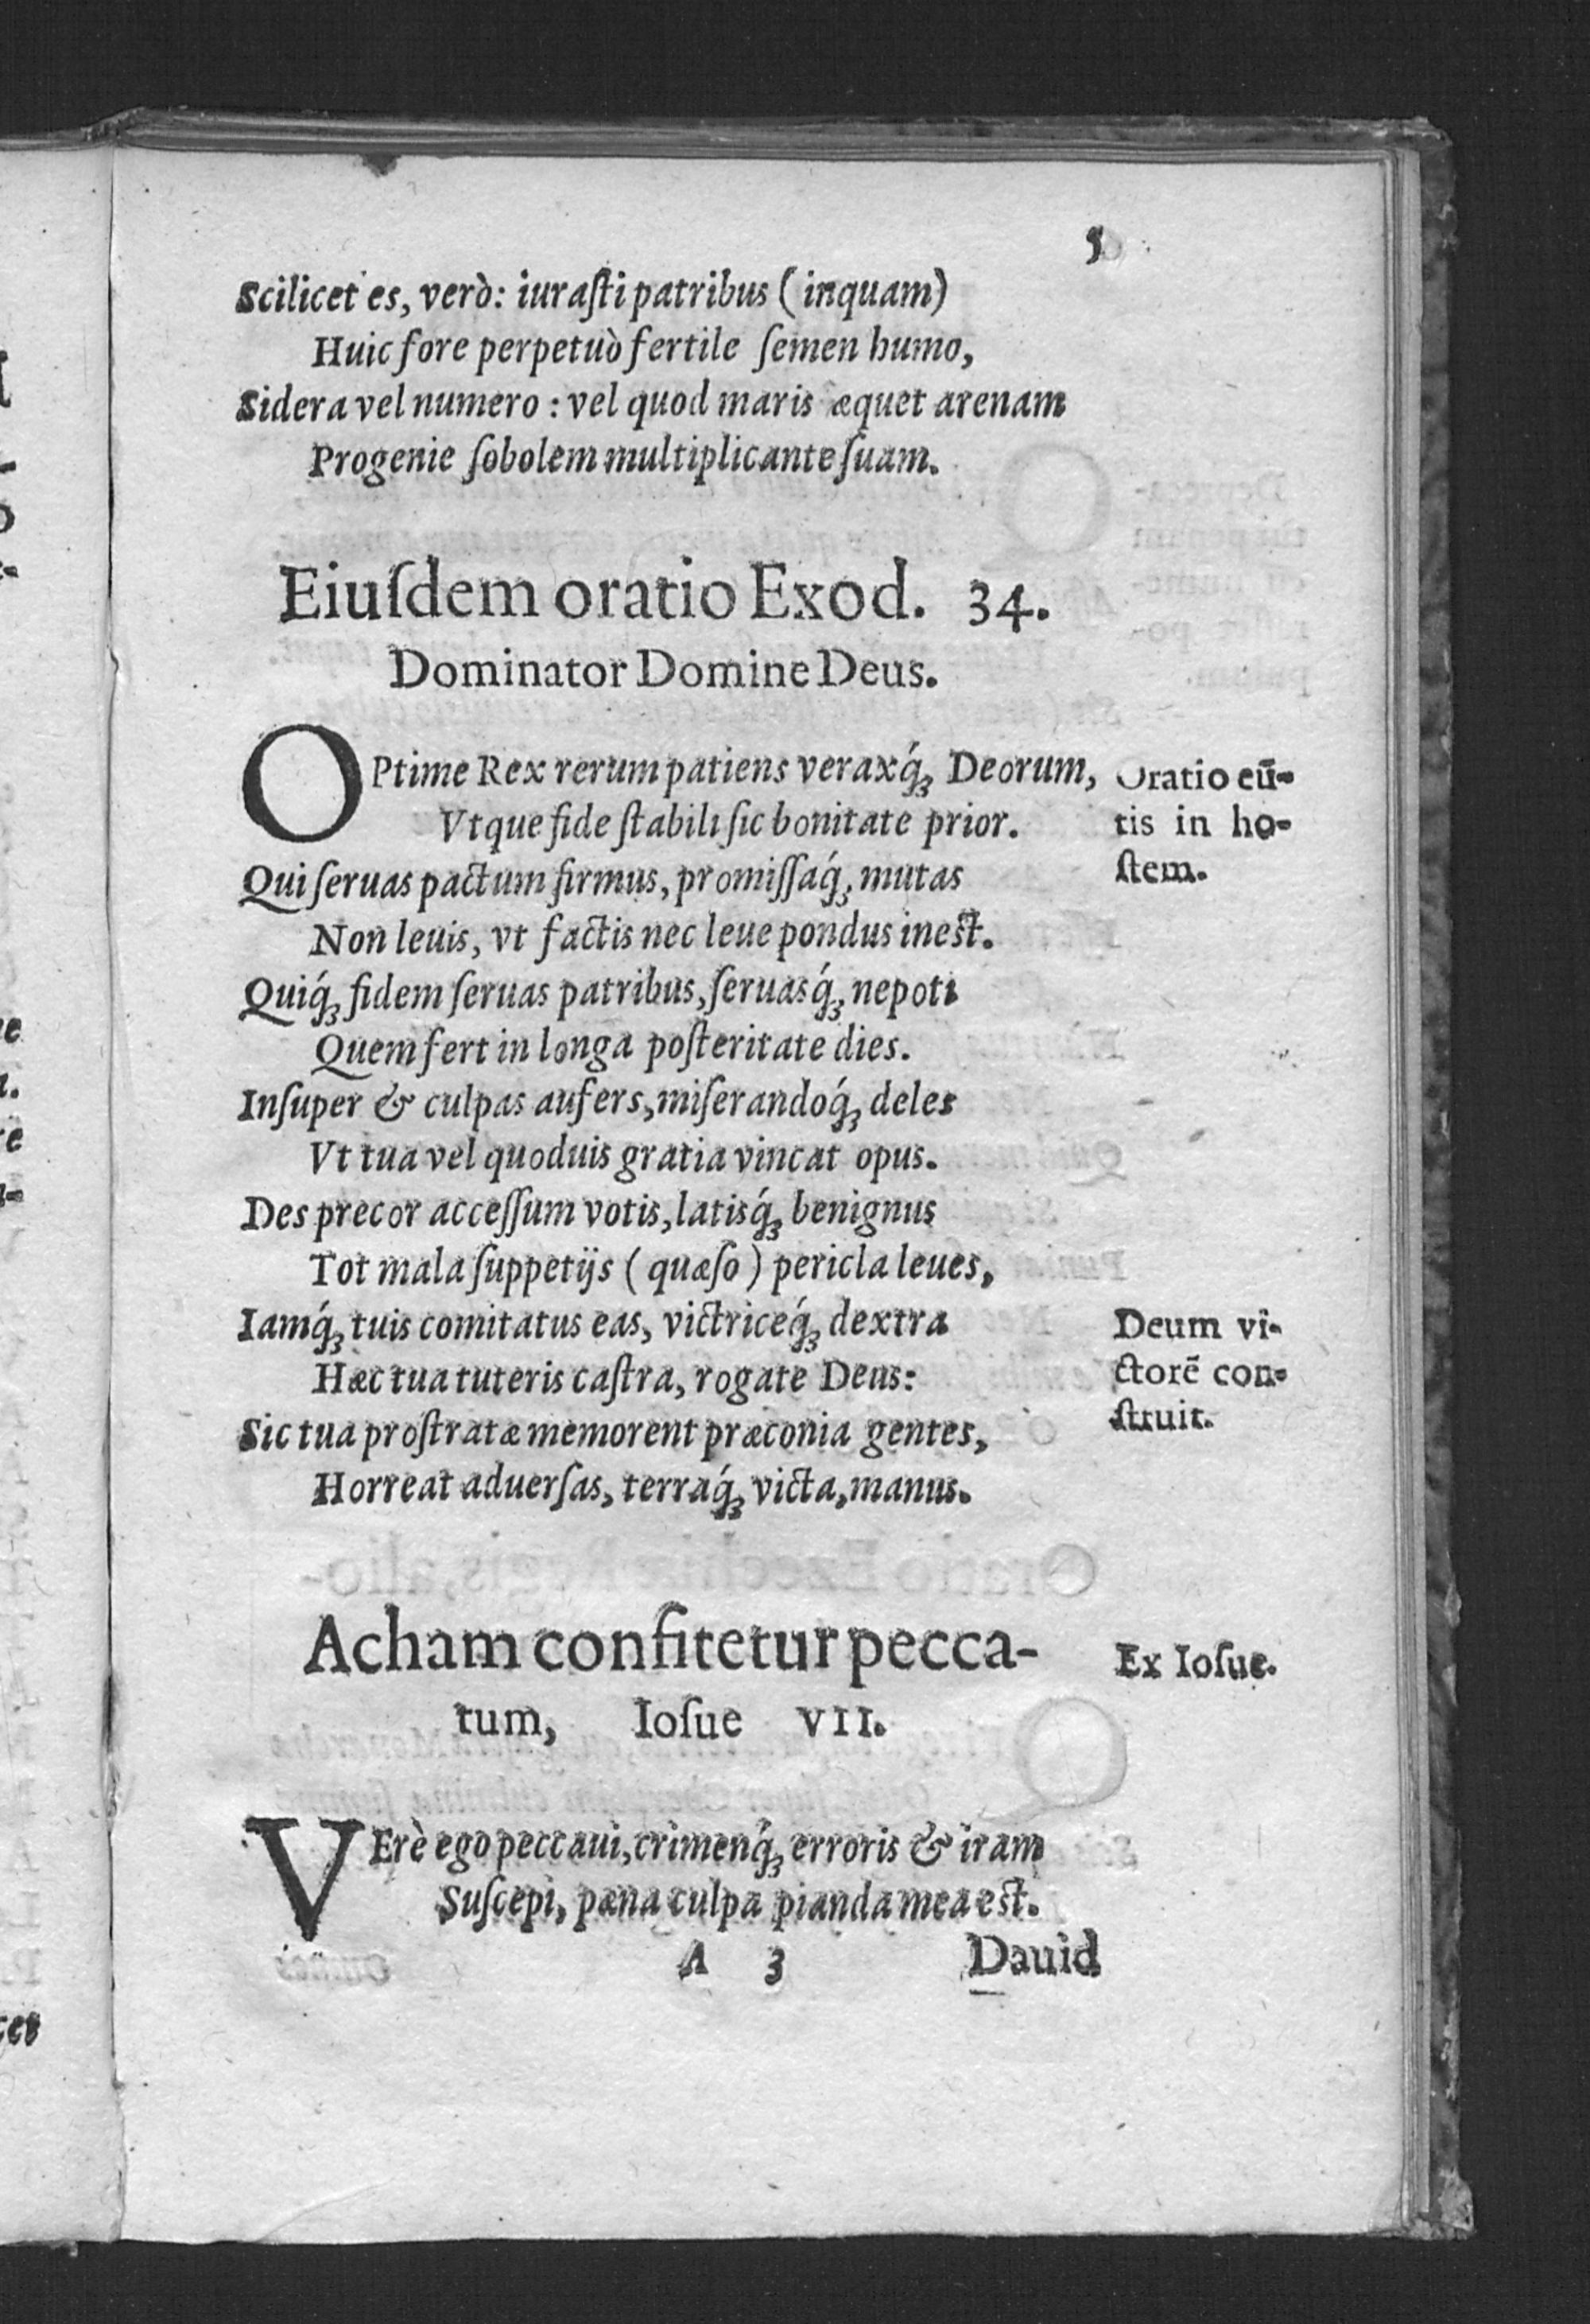 5
Scilicet es, verò: iuraſti patribus (inquam)
Huic fore perpetuò fertile ſemen humo,
Sidera vel numero: vel quod maris æquet arenam
Progenie ſobolem multiplicante ſuam.
Eiuſdem oratio Exod. 34.
Dominator Domine Deus.
OPtime Rex rerum patiens veraxq́ꝫ Deorum,
Vtque fide ſtabili ſic bonitate prior.
Oratio eū-
tis in ho-
ſtem.
Qui ſeruas pactum firmus, promiſſaq́ꝫ mutas
Non leuis, vt factis nec leue pondus ineſt.
Quiq́ꝫ fidem ſeruas patribus, ſeruasq́ꝫ nepoti
Quem fert in longa poſteritate dies.
Inſuper & culpas aufers, miſerandoq́ꝫ deles
Vt tua vel quoduis gratia vincat opus.
Des precor acceſſum votis, latisq́ꝫ benignus
Tot mala ſuppetijs (quæſo) pericla leues,
Iamq́ꝫ tuis comitatus eas, victriceq́ꝫ dextra
Hæc tua tuteris caſtra, rogate Deus:
Sic tua proſtratæ memorent præconia gentes,
Horreat aduerſas, terraq́ꝫ victa, manus.
Deum vi-
ctorē con-
ſtituit.
Acham confitetur pecca-
tum, Ioſue VII.
Ex Ioſue.
VErè ego peccaui, crimenq́ꝫ erroris & iram
Suſcepi, pæna culpa pianda mea eſt.
A 3 Dauid